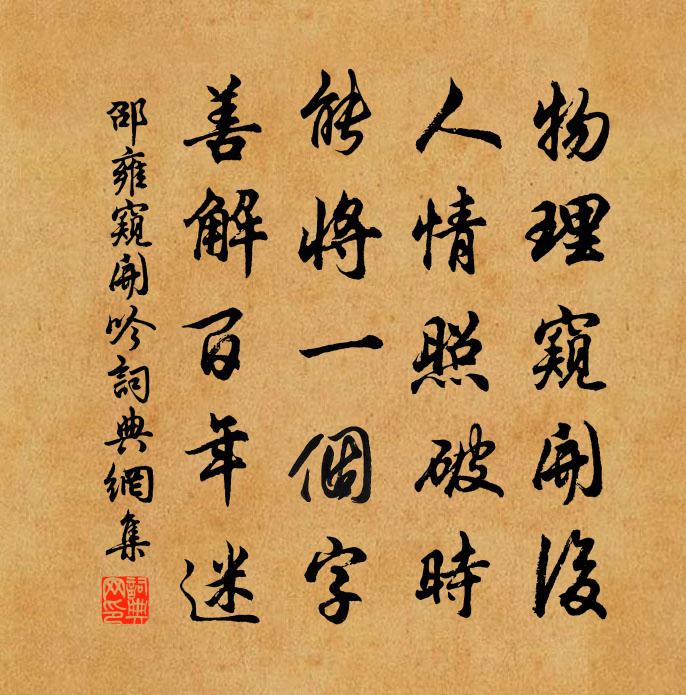 物理窺開後
人情照破時
能將一個字
善解百年迷
邵雍窺開吟詞典網集
詞典网印